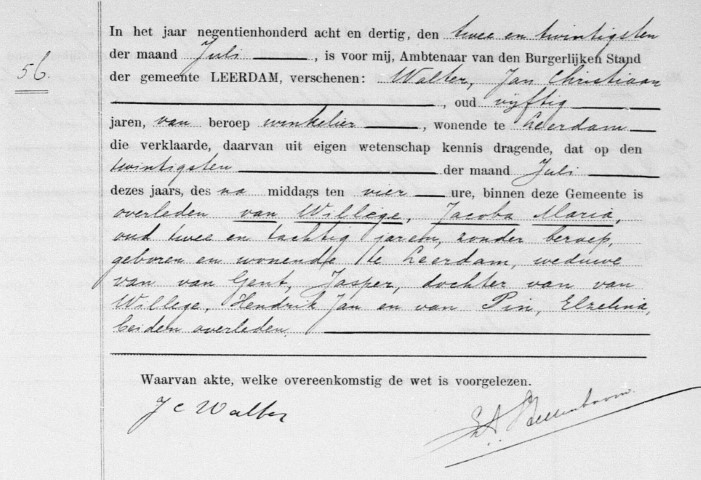 In het jaar negentienhonderd acht en dertig, den twee en twintigsten
der maand Juli, is voor mij, Ambtenaar van den Burgerlijken Stand
56.
der gemeente LEERDAM, verschenen: Walter, Jan Christiaan
, oud vijftig
jaren, van beroep winkelier, wonende te Leerdam
die verklaarde, daarvan uit eigen wetenschap kennis dragende, dat op den
twintigsten der maand Juli
dezes jaars, des na middags ten vier ure, binnen deze Gemeente is
overleden van Willege, Jacoba Maria,
oud twee en tachtig jaren, zonder beroep,
geboren en wonende te Leerdam, weduwe
van van Gent, Jasper, dochter van van
Willege, Hendrik Jan en van Pin, Elzelina,
beiden overleden.
Waarvan akte, welke overeenkomstig de wet is voorgelezen.
J C Walter